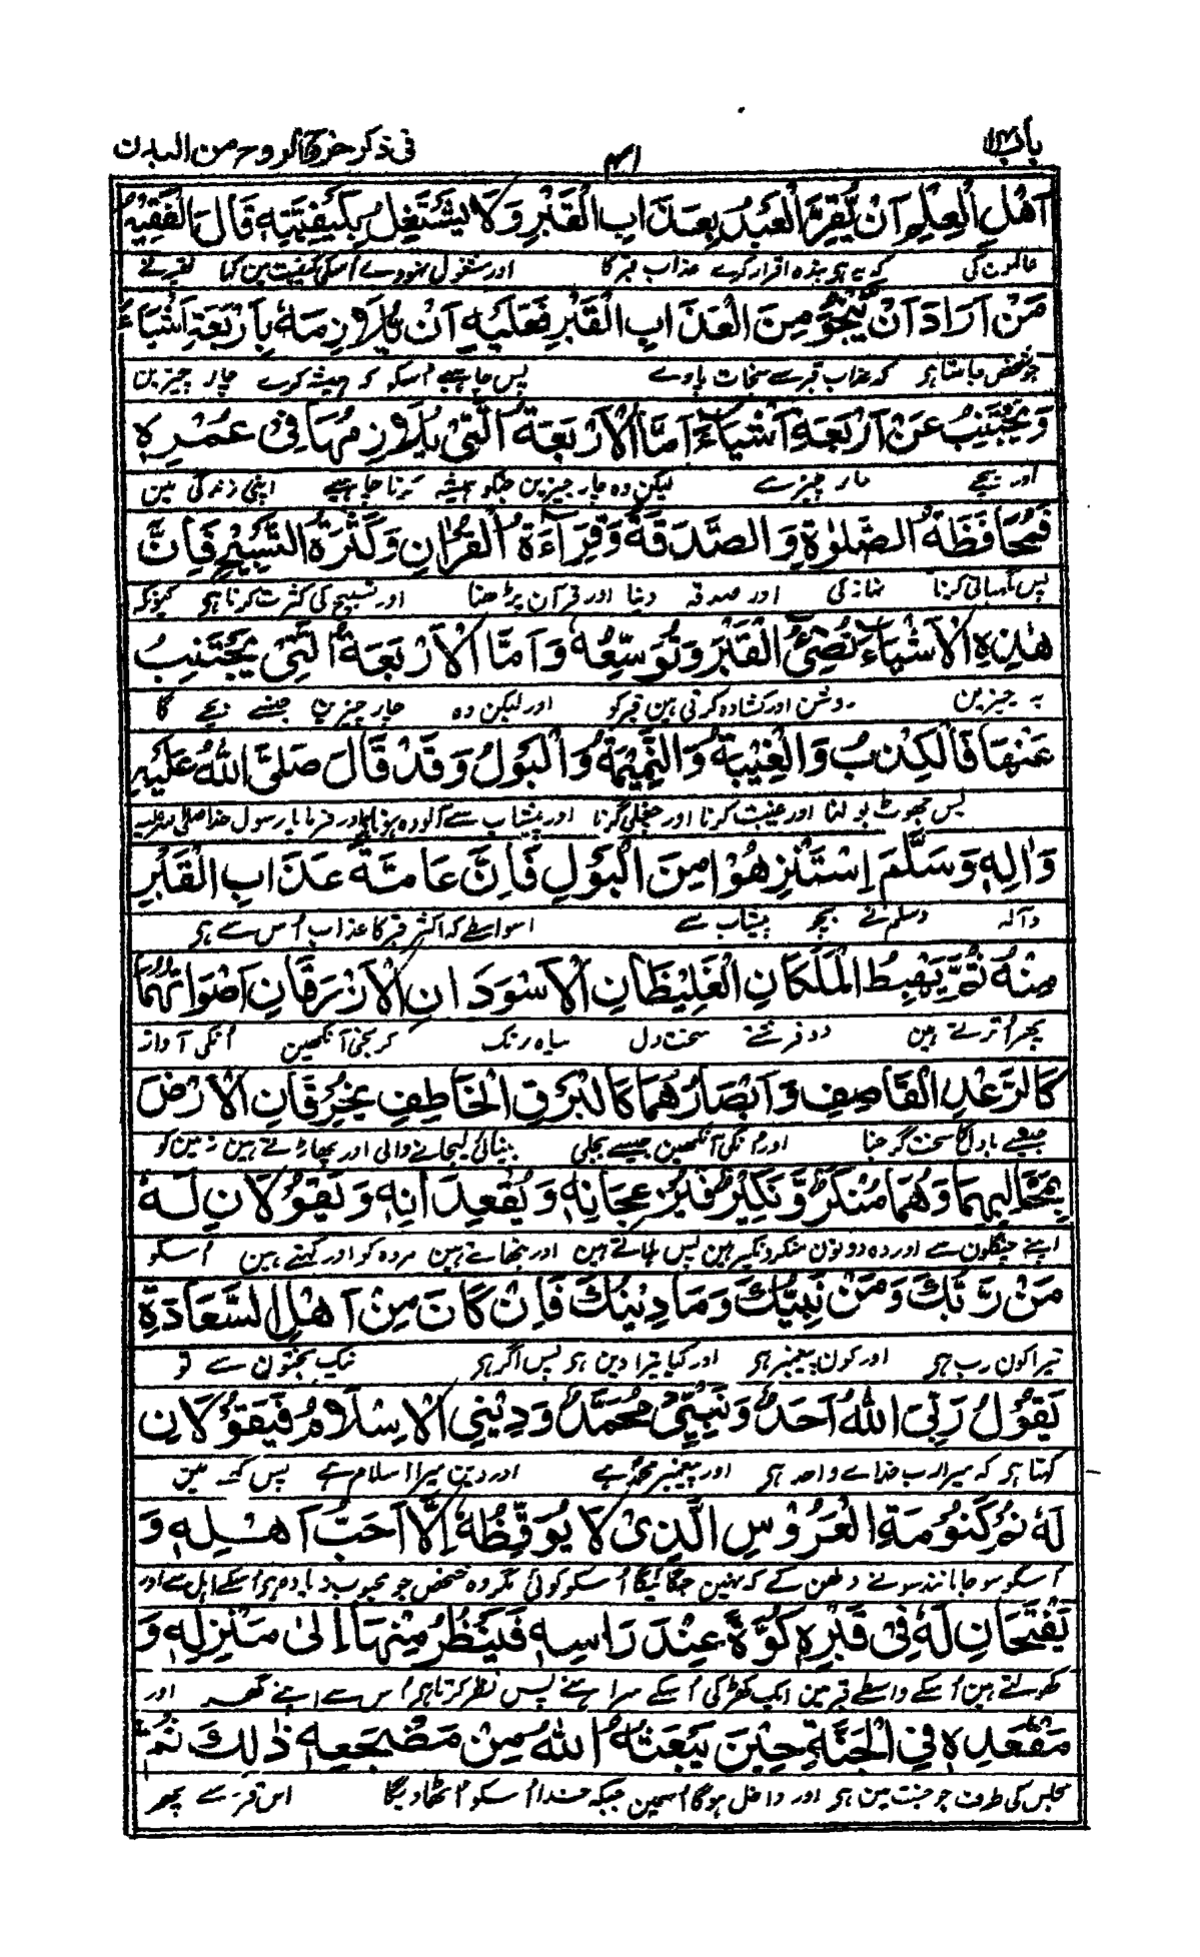 باب١٣
٤١
فى ذكر خروج الروح من البدن
اَهْلِ الْعِلْمِ اَنْ يُّقِرَّ الْعَبْدُ بِعَذَابِ الْقَبْرِ وَلَا يَشْتَغِلُ بِكَيْفِيَّتِهٖ قَالَ الْفَقِيْهُ
عالمون کی کہ یہ ہی بندہ اقرار کرے عذاب قبر کا اور مشغول نہووے اُسکی کیفیت مین کہا فقیہ نے
مَنْ اَرَادَ اَنْ يَّنْجُوَ مِنَ الْعَذَابِ الْقَبْرِ فَعَلَيْهِ اَنْ يُلَازِمَهٗ بِاَرْبَعَةِ اَشْيَاءَ
جو شخص چاہتا ہو کہ عذاب قبر سے نجات پاوے پس چاہیے اُسکو کہ ہمیشہ کرے چار چیزین
وَيَجْتَنِبُ عَنْ اَرْبَعَةِ اَشْيَاءَ اَمَّا الْاَرْبَعَةُ الَّتِىْ يُلَازِمُهَا فِىْ عُمْرِهٖ
اور بچے چار چیز سے لیکن وہ چار چیزین جنکو ہمیشہ کرنا چاہیے اپنی زندگی مین
فَمُحَافَظَةُ الصَّلٰوةِ وَالصَّدَقَةُ وَقِرَاءَةُ الْقُرْاٰنِ وَكَثْرَةُ التَّسْبِيْحِ فَاِنَّ
پس نگہبانی کرنا نماز کی اور صدقہ دینا اور قرآن پڑھنا اور تسبیح کی کثرت کرنا ہی کیونکہ
هٰذِهِ الْاَشْيَاءَ تُضِئُ الْقَبْرَ وَتُوَسِّعُهٗ وَاَمَّا الْاَرْبَعَةُ الَّتِىْ يَجْتَنِبُ
یہ چیزین روشن اور کشادہ کرتی ہین قبر کو اور لیکن وہ چار چیزین جنسے بچے گا
عَنْهَا فَالْكِذْبُ وَالْغِيْبَةُ وَالنَّمِيْمَةُ وَالْبَوْلُ وَقَدْ قَالَ صَلَّى اللّٰهُ عَلَيْهِ
پس جھوٹ بولنا اور غیبت کرنا اور چغلی کرنا اور پیشاب سے آلودہ ہونا اور فرمایا رسول خدا صلی اللہ علیہ
وَاٰلِهٖ وَسَلَّمَ اِسْتَنْزِهُوْا مِنَ الْبَوْلِ فَاِنَّ عَامَّةَ عَذَابِ الْقَبْرِ
وآلہ وسلم نے بچو پیشاب سے اسواسطے کہ اکثر قبر کا عذاب اُس سے ہی
مِنْهُ ثُمَّ يَهْبِطُ الْمَلَكَانِ الْغَلِيْظَانِ الْاَسْوَدَانِ الْاَزْرَقَانِ اَصْوَاتُهُمَا
پھر اُترتے ہین دو فرشتے سخت دل سیاہ رنگ کرنجی آنکھین اُنکی آواز
كَالرَّعْدِ الْقَاصِفِ وَاَبْصَارُهُمَا كَالْبَرْقِ الْخَاطِفِ يَخْرِقَانِ الْاَرْضَ
جیسے بادل کا سخت گرجنا اور اُنکی آنکھین جیسے بجلی بینائی لیجانے والی اور پھاڑتے ہین زمین کو
بِمَخَالِبِهِمَا وَهُمَا مُنْكَرٌ وَّنَكِيْرٌ فَيُزْعِجَانِهٖ وَيُقْعِدَانِهٖ وَيَقُوْلَانِ لَهٗ
اپنے چنگلون سے اور وہ دونون منکر و نکیر ہین پس ہلاتے ہین اور بٹھاتے ہین مردہ کو اور کہتے ہین اُسکو
مَنْ رَّبُّكَ وَمَنْ نَّبِيُّكَ وَمَا دِيْنُكَ فَاِنْ كَانَ مِنْ اَهْلِ السَّعَادَةِ
تیرا کون رب ہی اور کون پیغمبر ہی اور کیا تیرا دین ہی پس اگر ہی نیک بختون سے تو
يَقُوْلُ رَبِّىَ اللّٰهُ اَحَدٌ وَنَبِيِّىْ مُحَمَّدٌ وَدِيْنِى الْاِسْلَامُ فَيَقُوْلَانِ
کہتا ہی کہ میرا رب خدا واحد ہی اور پیغمبر محمدؐ ہے اور دین میرا اسلام ہے پس کہتے ہین
لَهٗ نَمْ كَنَوْمَةِ الْعَرُوْسِ الَّذِىْ لَا يُوْقِظُهٗ اِلَّا اَحَبُّ اَهْلِهٖ وَ
اُسکو سوجا مانند سونے دولھن کے کہ نہین جگائیگا اُسکو کوئی مگر وہ شخص جو محبوب زیادہ ہی اُسکے اہل سے اور
يَفْتَحَانِ لَهٗ فِىْ قَبْرِهٖ كُوَّةً عِنْدَ رَاْسِهٖ فَيَنْظُرُ مِنْهَا اِلٰى مَنْزِلِهٖ وَ
کھولتے ہین اُسکے واسطے قبر مین ایک کھڑکی اُسکے سرہانے پس نظر کرتا ہی اُس سے اپنے گھر اور
مَقْعَدِهٖ فِى الْجَنَّةِ حِيْنَ يَبْعَثُهُ اللّٰهُ مِنْ مَضْجَعِهٖ ذٰلِكَ ثُمَّ
مجلس کی طرف جو جنت مین ہی اور داخل ہوگا اُسمین جبکہ خدا اُسکو اُٹھا دیگا اس قبر سے پھر